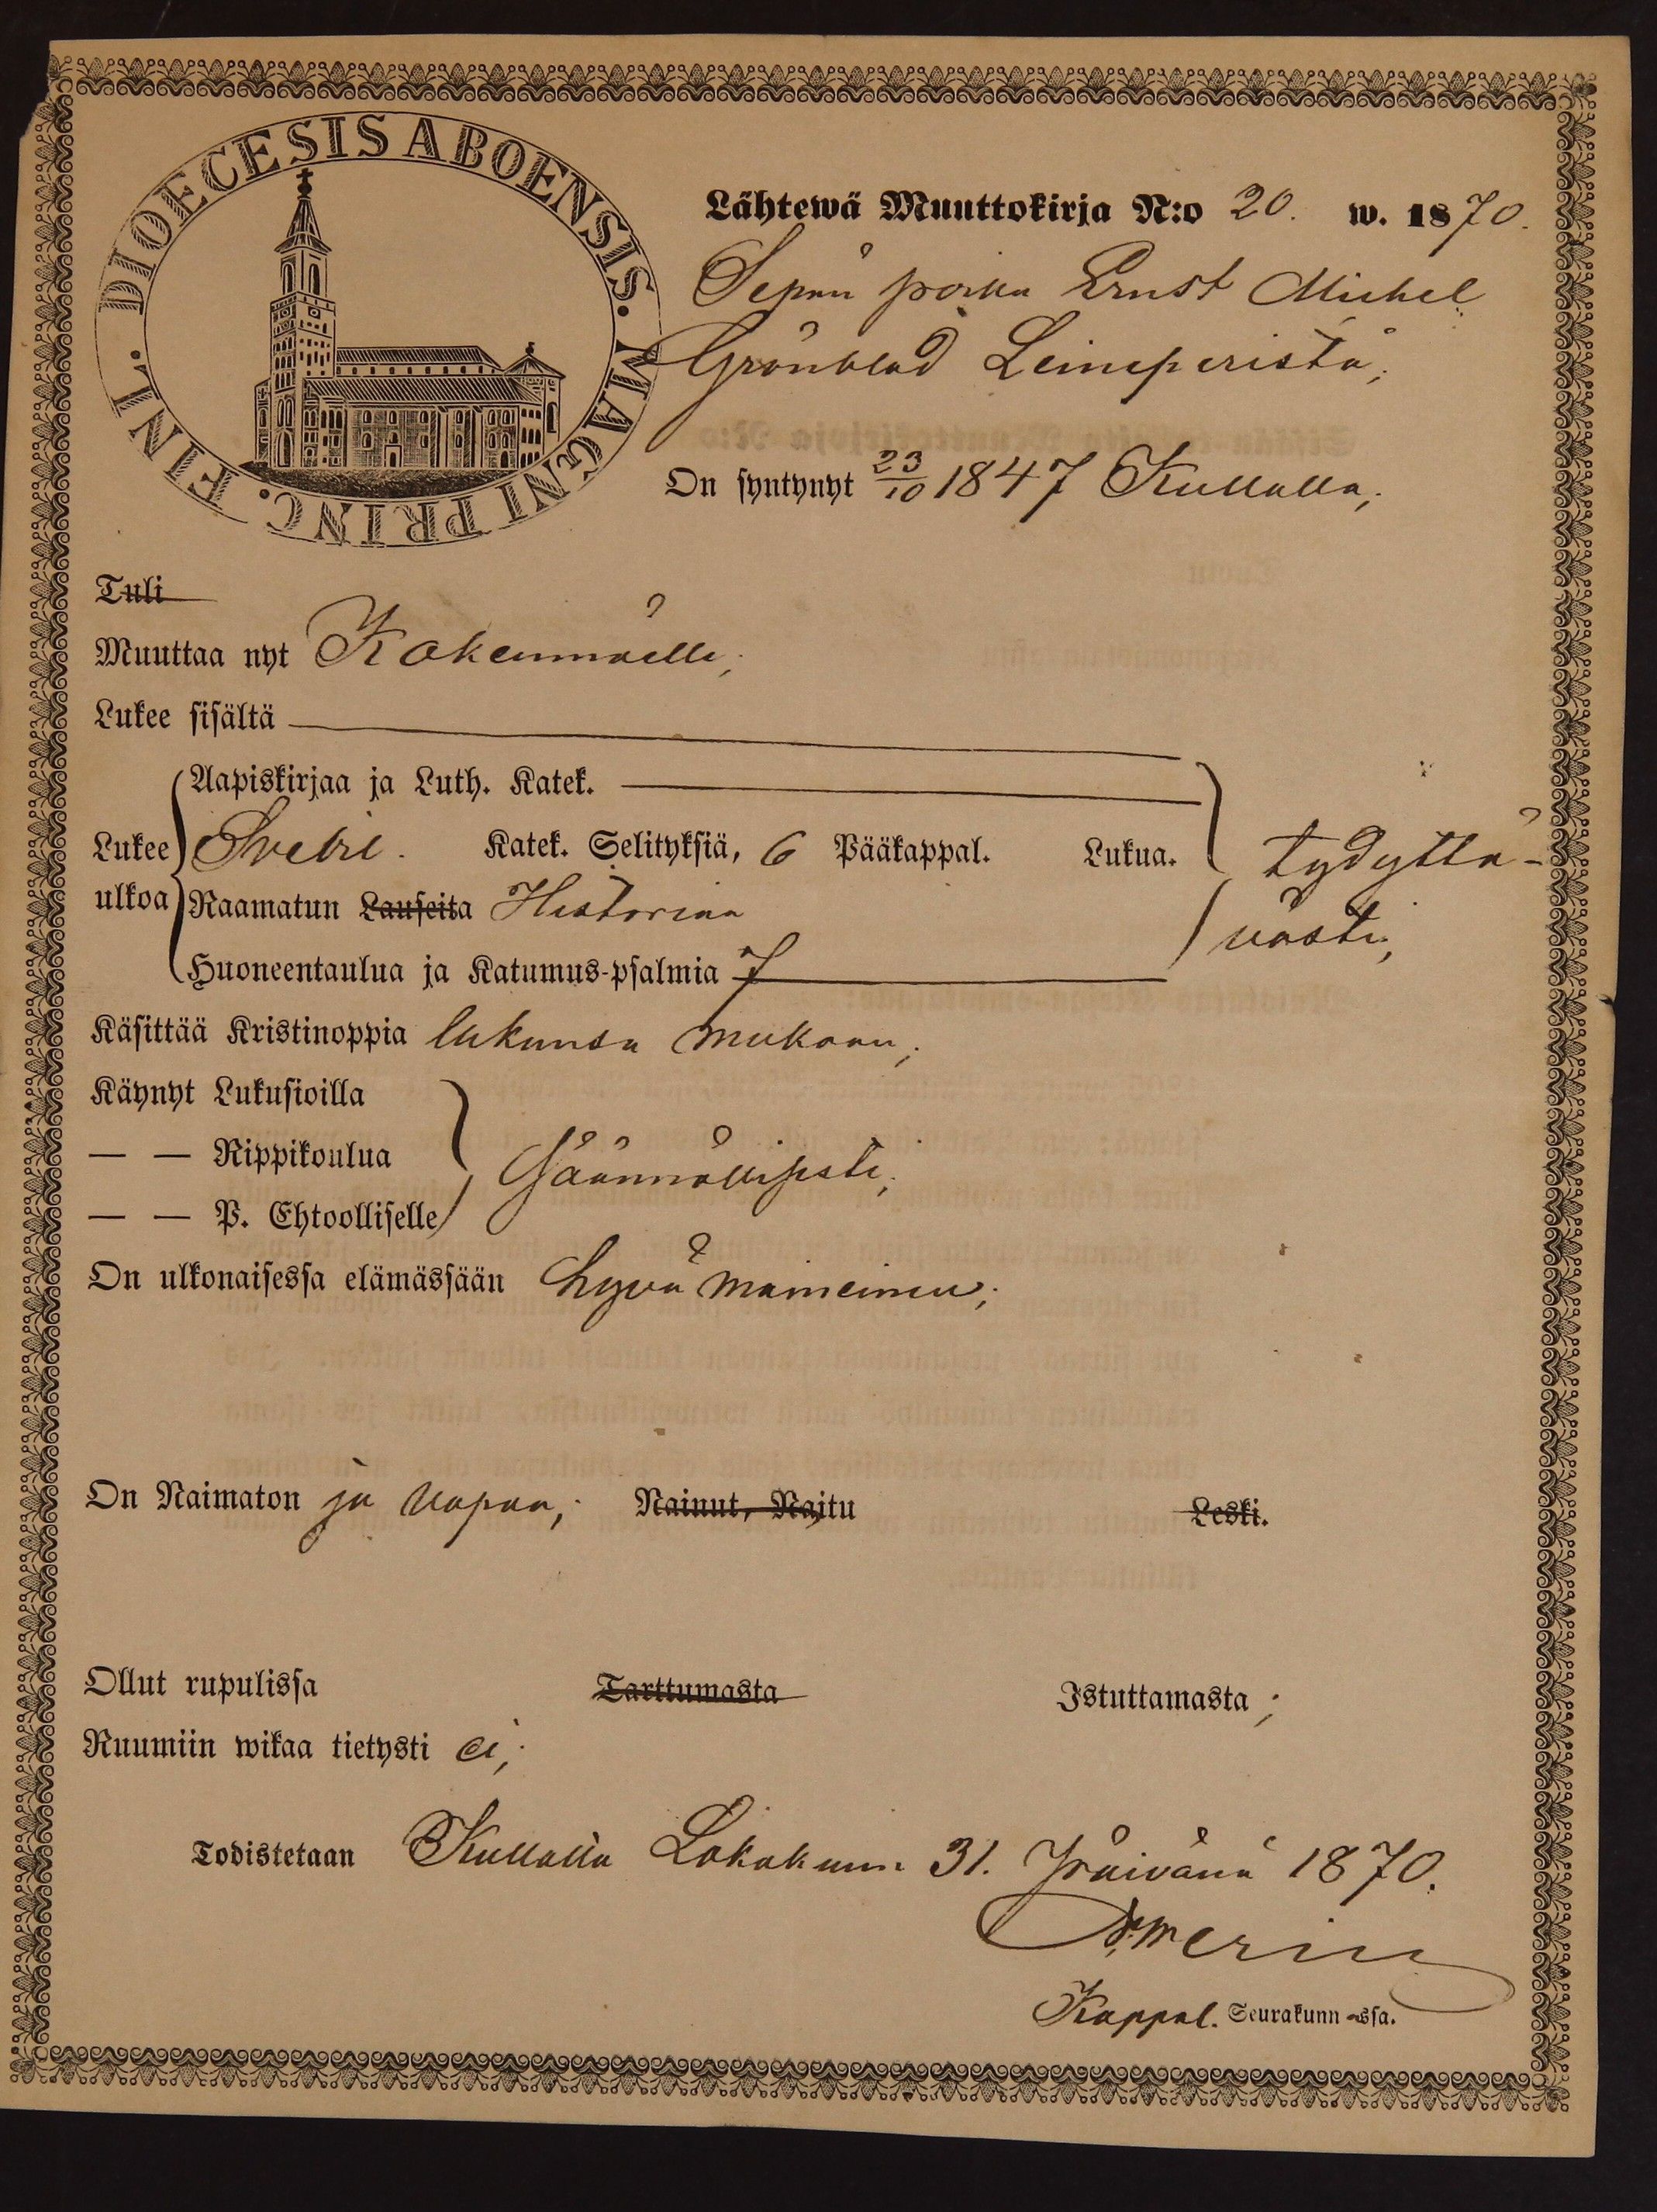 DIOECESIS ABOENSIS. MAGNI PRINC. FINL.
Lähtewä Muuttokirja N:o 20. w. 1870.
Sepän poika Ernst Michel
Grönblad Leineperistä;
On syntynyt 23/10 1847 Kullalla;
Tuli
Muuttaa nyt Kokeumäelle;
Lukee sisältä
Aapiskirjaa ja Luth. Katek.
Lukee ulkoa Svebil. Katek. Selityksiä, 6 Pääkappal. Lukua. tydyttä-
Raamatun Lauseita Historiaa västi;
Huoneentaulua ja Katumus-psalmia 7
Käsittää Kristinoppia lukunsa mukaan;
Käynyt Lukusioilla
— — Rippikoulua Säännöllisesti;
— — P. Ehtoolliselle
On ulkonaisessa elämässään hyvä maineinen;
On Naimaton ja vapaa; Nainut, Naitu Leski.
Ollut rupulissa Tarttumasta Istuttamasta;
Ruumiin wikaa tietysti ei;
Todistetaan Kullalla Lokakuun 31. Päivänä 1870.
Kappal. Seurakunnassa.